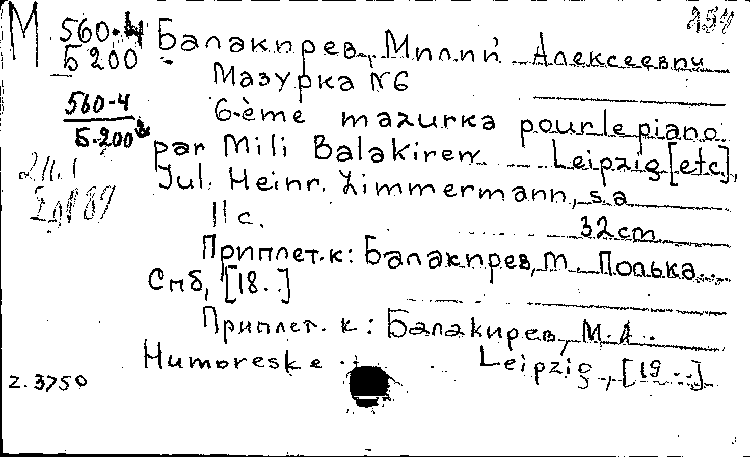 М 560-4 Балакирев, Милий Алексеевич
Б 200
Мазурка N6
560-4
Б-200
6-ème mazurka pour le piano.
par Mili Balakirew. Leipzig [etc.],
Jul. Heinr. Zimmermann, s.a
11 с. 32cm
Приплет. к: Балакирев, М. Полька...
Спб, [18..]
Приплет. к: Балакирев, М.А.
Humoreske. Leipzig, [19..]
z. 3750